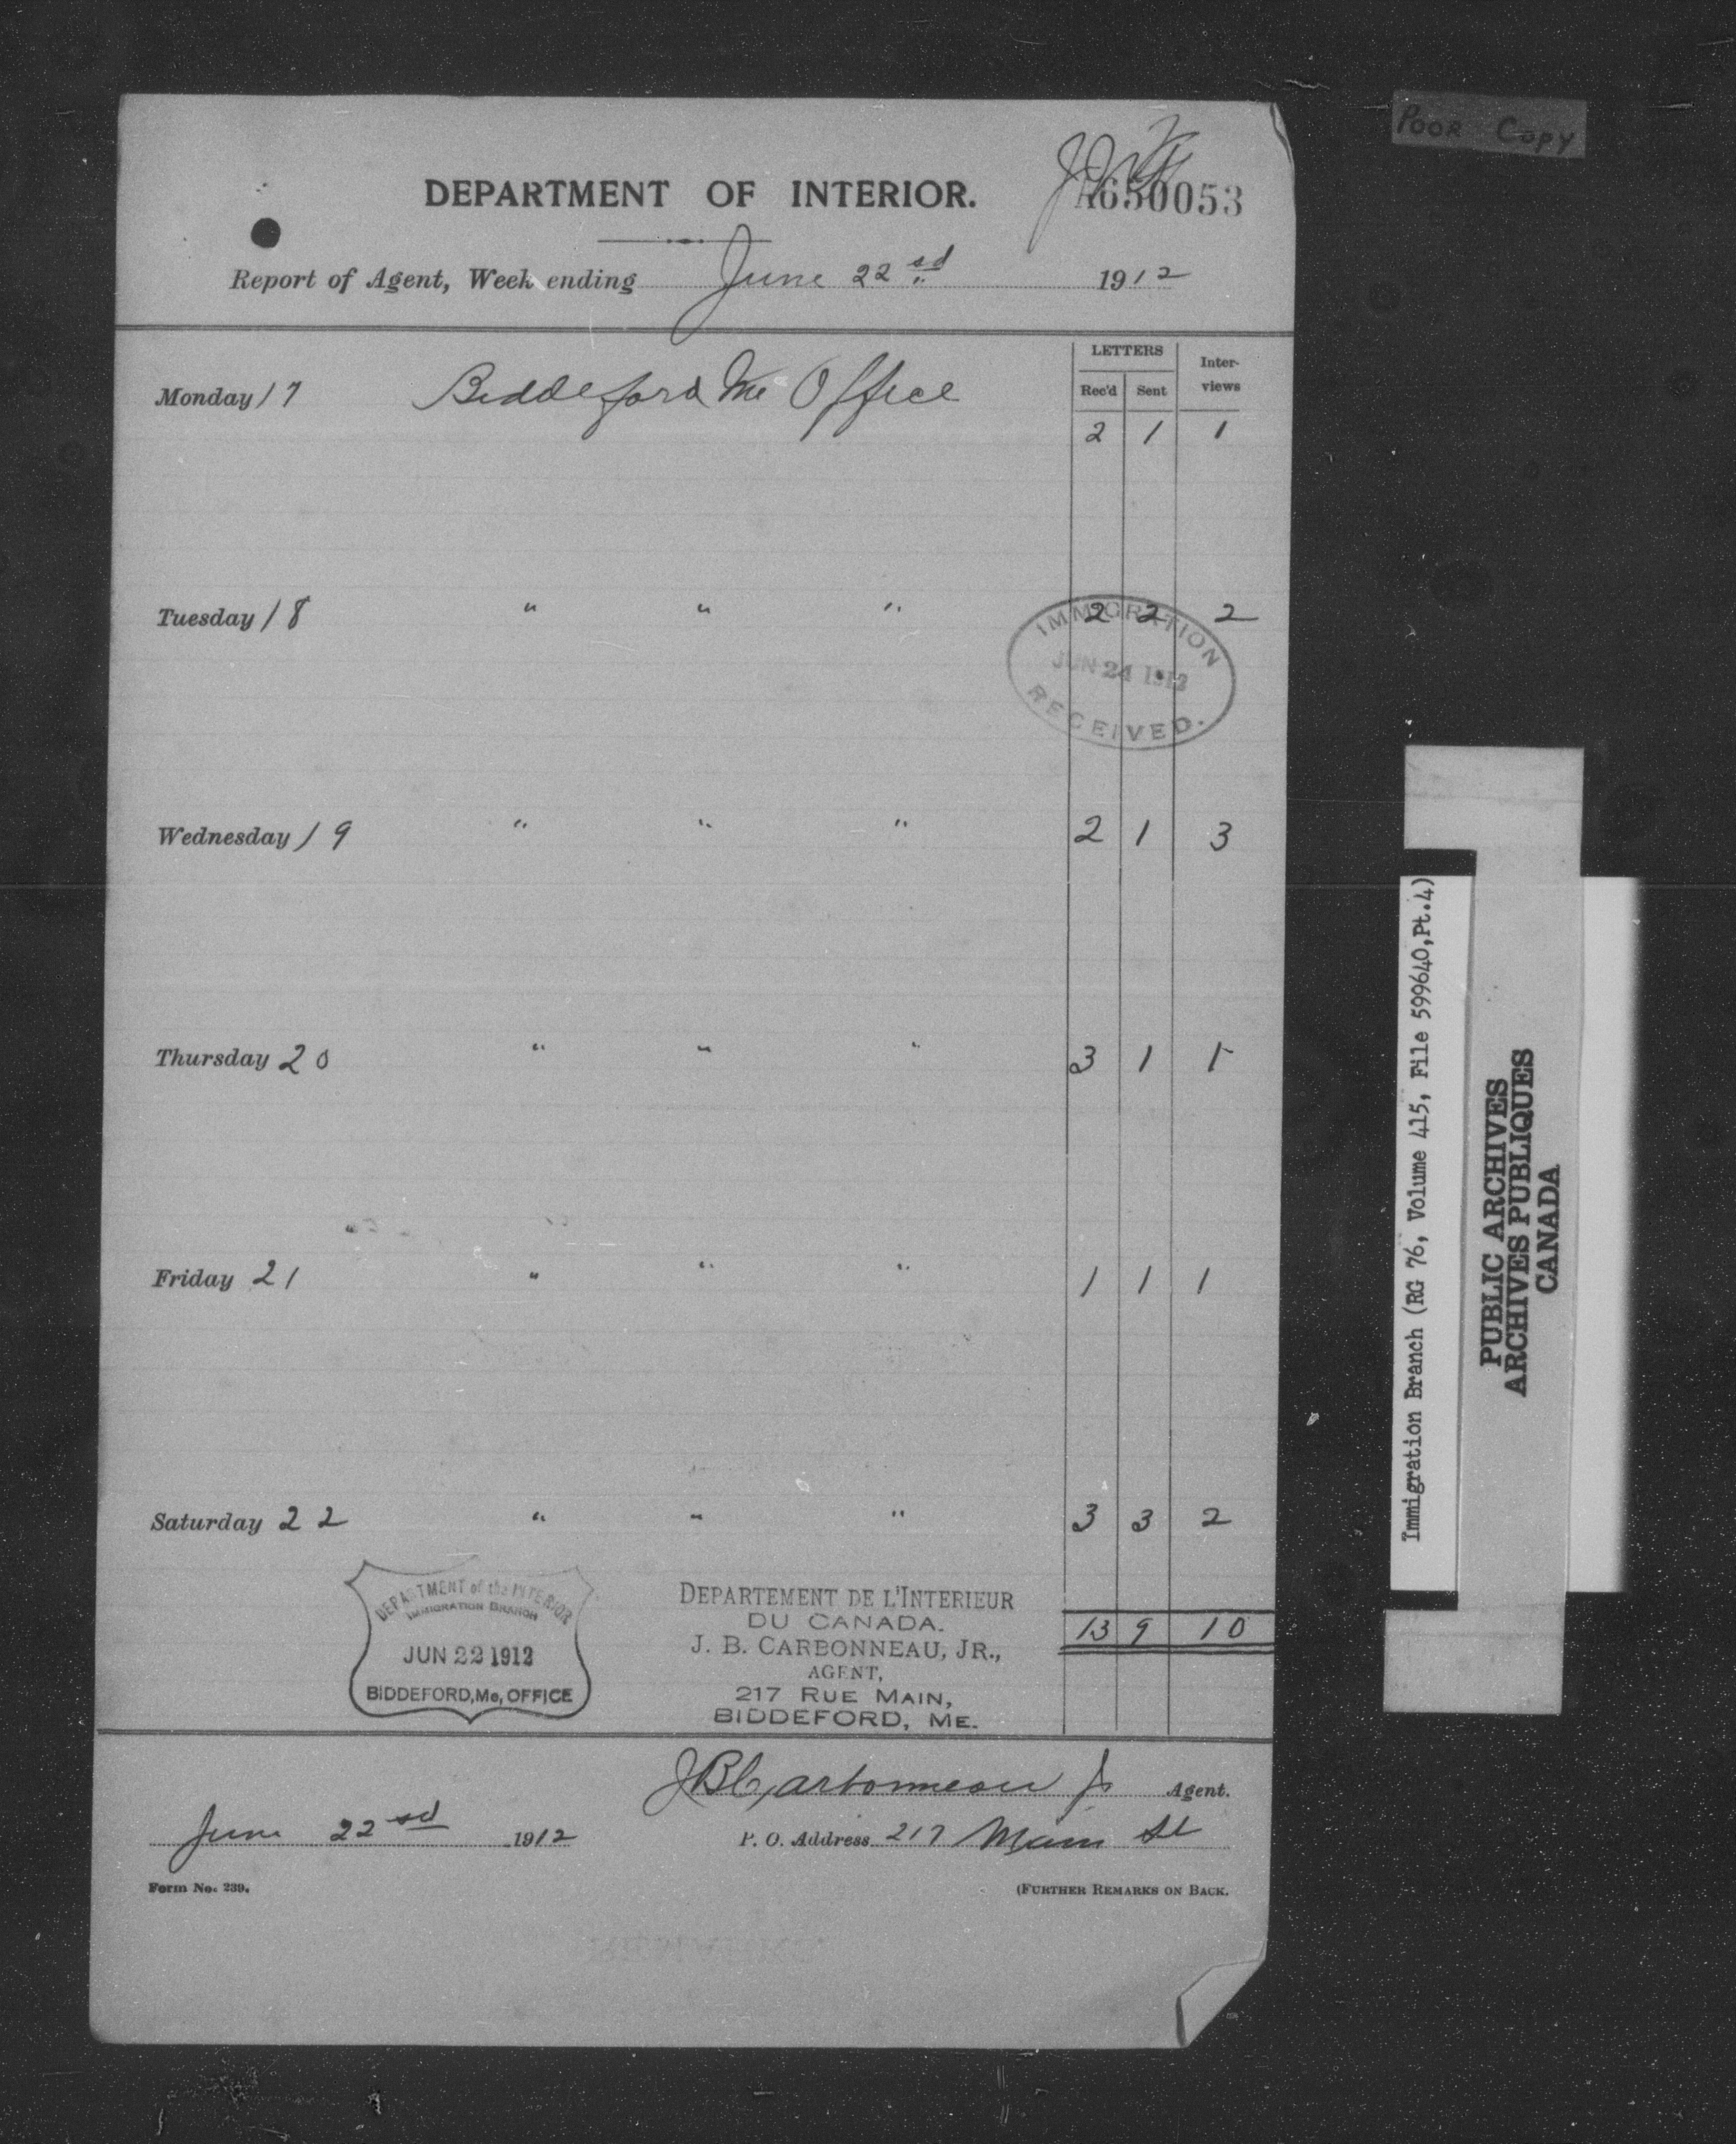 POOR COPY
DEPARTMENT OF INTERIOR.
A650053
Report of Agent, Week ending June 22sd 1912
LETTERS
Inter-views
Rec'd Sent
Monday 17 Biddeford Me Office
2 1 1
Tuesday 18 " " " 2 2 2
IMMIGRATION
JUN 24 1912
RECEIVED.
Wednesday 19 " " " 2 1 3
Thursday 20 " " " 3 1 1
Friday 21 " " " 1 1 1
Saturday 22 " " " 3 3 2
13 9 10
DEPARTMENT of the INTERIOR
IMMIGRATION BRANCH
JUN 22 1912
BIDDEFORD, Me, OFFICE
DEPARTEMENT DE L'INTERIEUR
DU CANADA.
J. B. CARBONNEAU, JR.,
AGENT,
217 RUE MAIN,
BIDDEFORD, ME.
JB Carbonneau Jr Agent.
June 22sd 1912 P. O. Address 217 Main St
Form No. 239. (FURTHER REMARKS ON BACK.
Immigration Branch (RG 76, Volume 415, File 599640, Pt.4)
PUBLIC ARCHIVES
ARCHIVES PUBLIQUES
CANADA